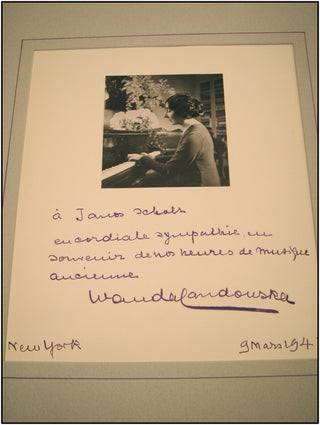 à Janos Scholz
en cordiale sympathie, en
souvenir de nos heures de musique
ancienne
Wanda Landowska
New York
9 Mars 194